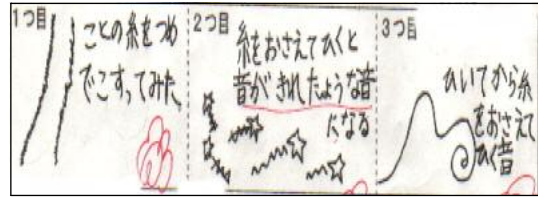 1つ目
ことの糸をつめ
でこすってみた
2つ目
糸をおさえてひくと
音がきれたような音
になる
3つ目
ひいてから糸
をおさえて
ひく音